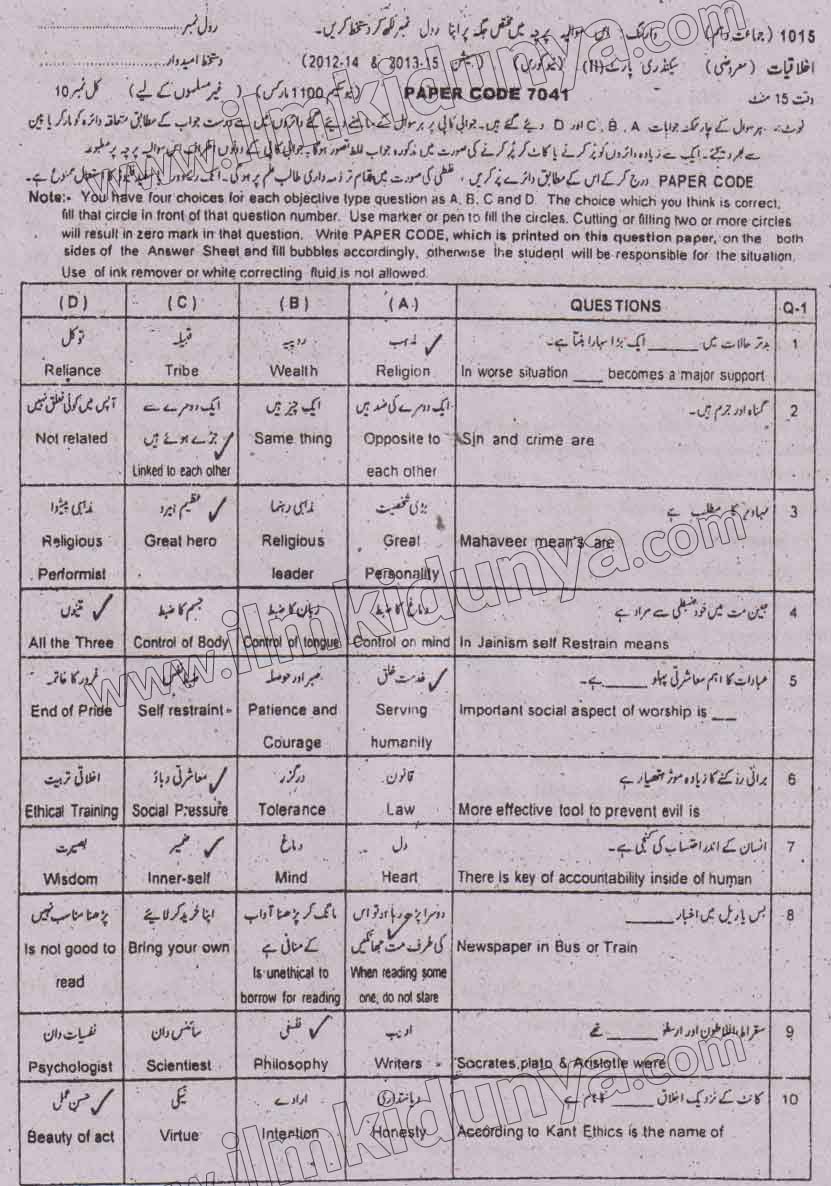 1015 (جماعت دہم) وارننگ: اس سوالیہ پرچہ میں مختص جگہ پر اپنا رول نمبر لکھ کر دستخط کریں۔ رول نمبر
اخلاقیات (معروضی) سیکنڈری پارٹ (II) (نیو کورس) (سیشن 2013-15 & 2012-14) دستخط امیدوار
وقت 15 منٹ PAPER CODE 7041 (نیو سکیم 1100 مارکس) (غیر مسلموں کے لیے) کل نمبر 10
نوٹ:۔ ہر سوال کے چار ممکنہ جوابات A، B، C اور D دیئے گئے ہیں۔ جوابی کاپی پر ہر سوال کے سامنے دیئے گئے دائروں میں سے درست جواب کے مطابق متعلقہ دائرہ کو مارکر یا پین
سے بھر دیجئے۔ ایک سے زیادہ دائروں کو پُر کرنے یا کاٹ کر پُر کرنے کی صورت میں مذکورہ جواب غلط تصور ہوگا۔ جوابی کاپی کے دونوں اطراف اس سوالیہ پرچہ پر مطبوعہ
PAPER CODE درج کر کے اس کے مطابق دائرے پُر کریں، غلطی کی صورت میں تمام تر ذمہ داری طالب علم پر ہوگی۔ کا استعمال ممنوع ہے۔
Note:- You have four choices for each objective type question as A, B, C and D. The choice which you think is correct,
fill that circle in front of that question number. Use marker or pen to fill the circles. Cutting or filling two or more circles
will result in zero mark in that question. Write PAPER CODE, which is printed on this question paper, on the both
sides of the Answer Sheet and fill bubbles accordingly, otherwise the student will be responsible for the situation.
Use of ink remover or white correcting fluid is not allowed.
(D) (C) (B) (A) QUESTIONS Q-1
توکل قبیلہ روپیہ مذہب بدتر حالات میں ______ ایک بڑا سہارا بنتا ہے۔ 1
Reliance Tribe Wealth Religion In worse situation ___ becomes a major support
آپس میں کوئی تعلق نہیں ایک دوسرے سے ایک چیز ہیں ایک دوسرے کی ضد ہیں گناہ اور جرم ہیں۔ 2
Not related جڑے ہوئے ہیں Same thing Opposite to Sin and crime are
Linked to each other each other
مذہبی پیشوا عظیم ہیرو مذہبی رہنما بڑی شخصیت مہاویر کا مطلب ہے 3
Religious Great hero Religious Great Mahaveer mean's are
Performist leader Personality
تینوں جسم کا ضبط زبان کا ضبط دماغ کا ضبط جین مت میں خود ضبطی سے مراد ہے 4
All the Three Control of Body Control of tongue Control on mind In Jainism self Restrain means
غرور کا خاتمہ ضبط نفس صبر اور حوصلہ خدمت خلق عبادات کا اہم معاشرتی پہلو ______ ہے۔ 5
End of Pride Self restraint Patience and Serving Important social aspect of worship is __
Courage humanity
اخلاقی تربیت معاشرتی دباؤ درگزر قانون برائی روکنے کا زیادہ موثر ہتھیار ہے 6
Ethical Training Social Pressure Tolerance Law More effective tool to prevent evil is
بصیرت ضمیر دماغ دل انسان کے اندر احتساب کی کنجی ہے۔ 7
Wisdom Inner-self Mind Heart There is key of accountability inside of human
پڑھنا مناسب نہیں اپنا خرید کر لائیے مانگ کر پڑھنا آداب دوسرا پڑھ رہا ہو تو اس بس یا ریل میں اخبار ______ 8
Is not good to Bring your own کے منافی ہے کی طرف مت جھانکیں Newspaper in Bus or Train
read Is unethical to When reading some
borrow for reading one, do not stare
نفسیات دان سائنس دان فلسفی ادیب سقراط، افلاطون اور ارسطو ______ تھے 9
Psychologist Scientiest Philosophy Writers Socrates, plato & Aristotle were
حسن عمل نیکی ارادے دیانتداری کانٹ کے نزدیک اخلاق ______ کا نام ہے 10
Beauty of act Virtue Intention Honesty According to Kant Ethics is the name of
www.ilmkidunya.com
www.ilmkidunya.com
www.ilmkidunya.com